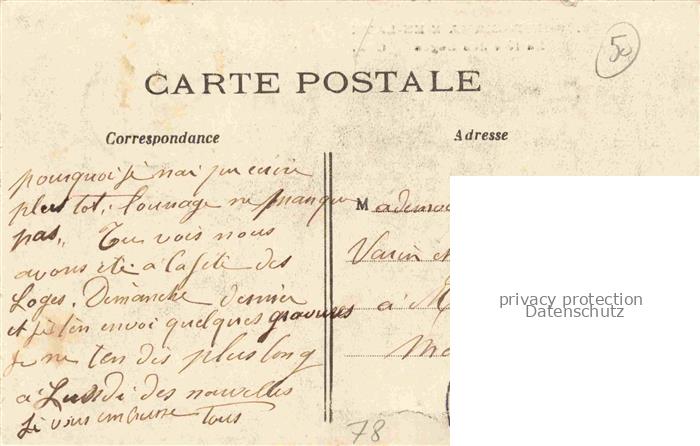 50
CARTE POSTALE
Correspondance
Adresse
pourquoi je nai pu ecrire
plus tot, louvrage ne manque
pas,, Tu vois nous
avons ete a la fete des
Loges. Dimanche dernier
et je ten envoi quelques gravures
Je ne ten dis plus long
a Lundi des nouvelles
Je vous embrasse tous
M
Varin et
a M
78
privacy protection
Datenschutz